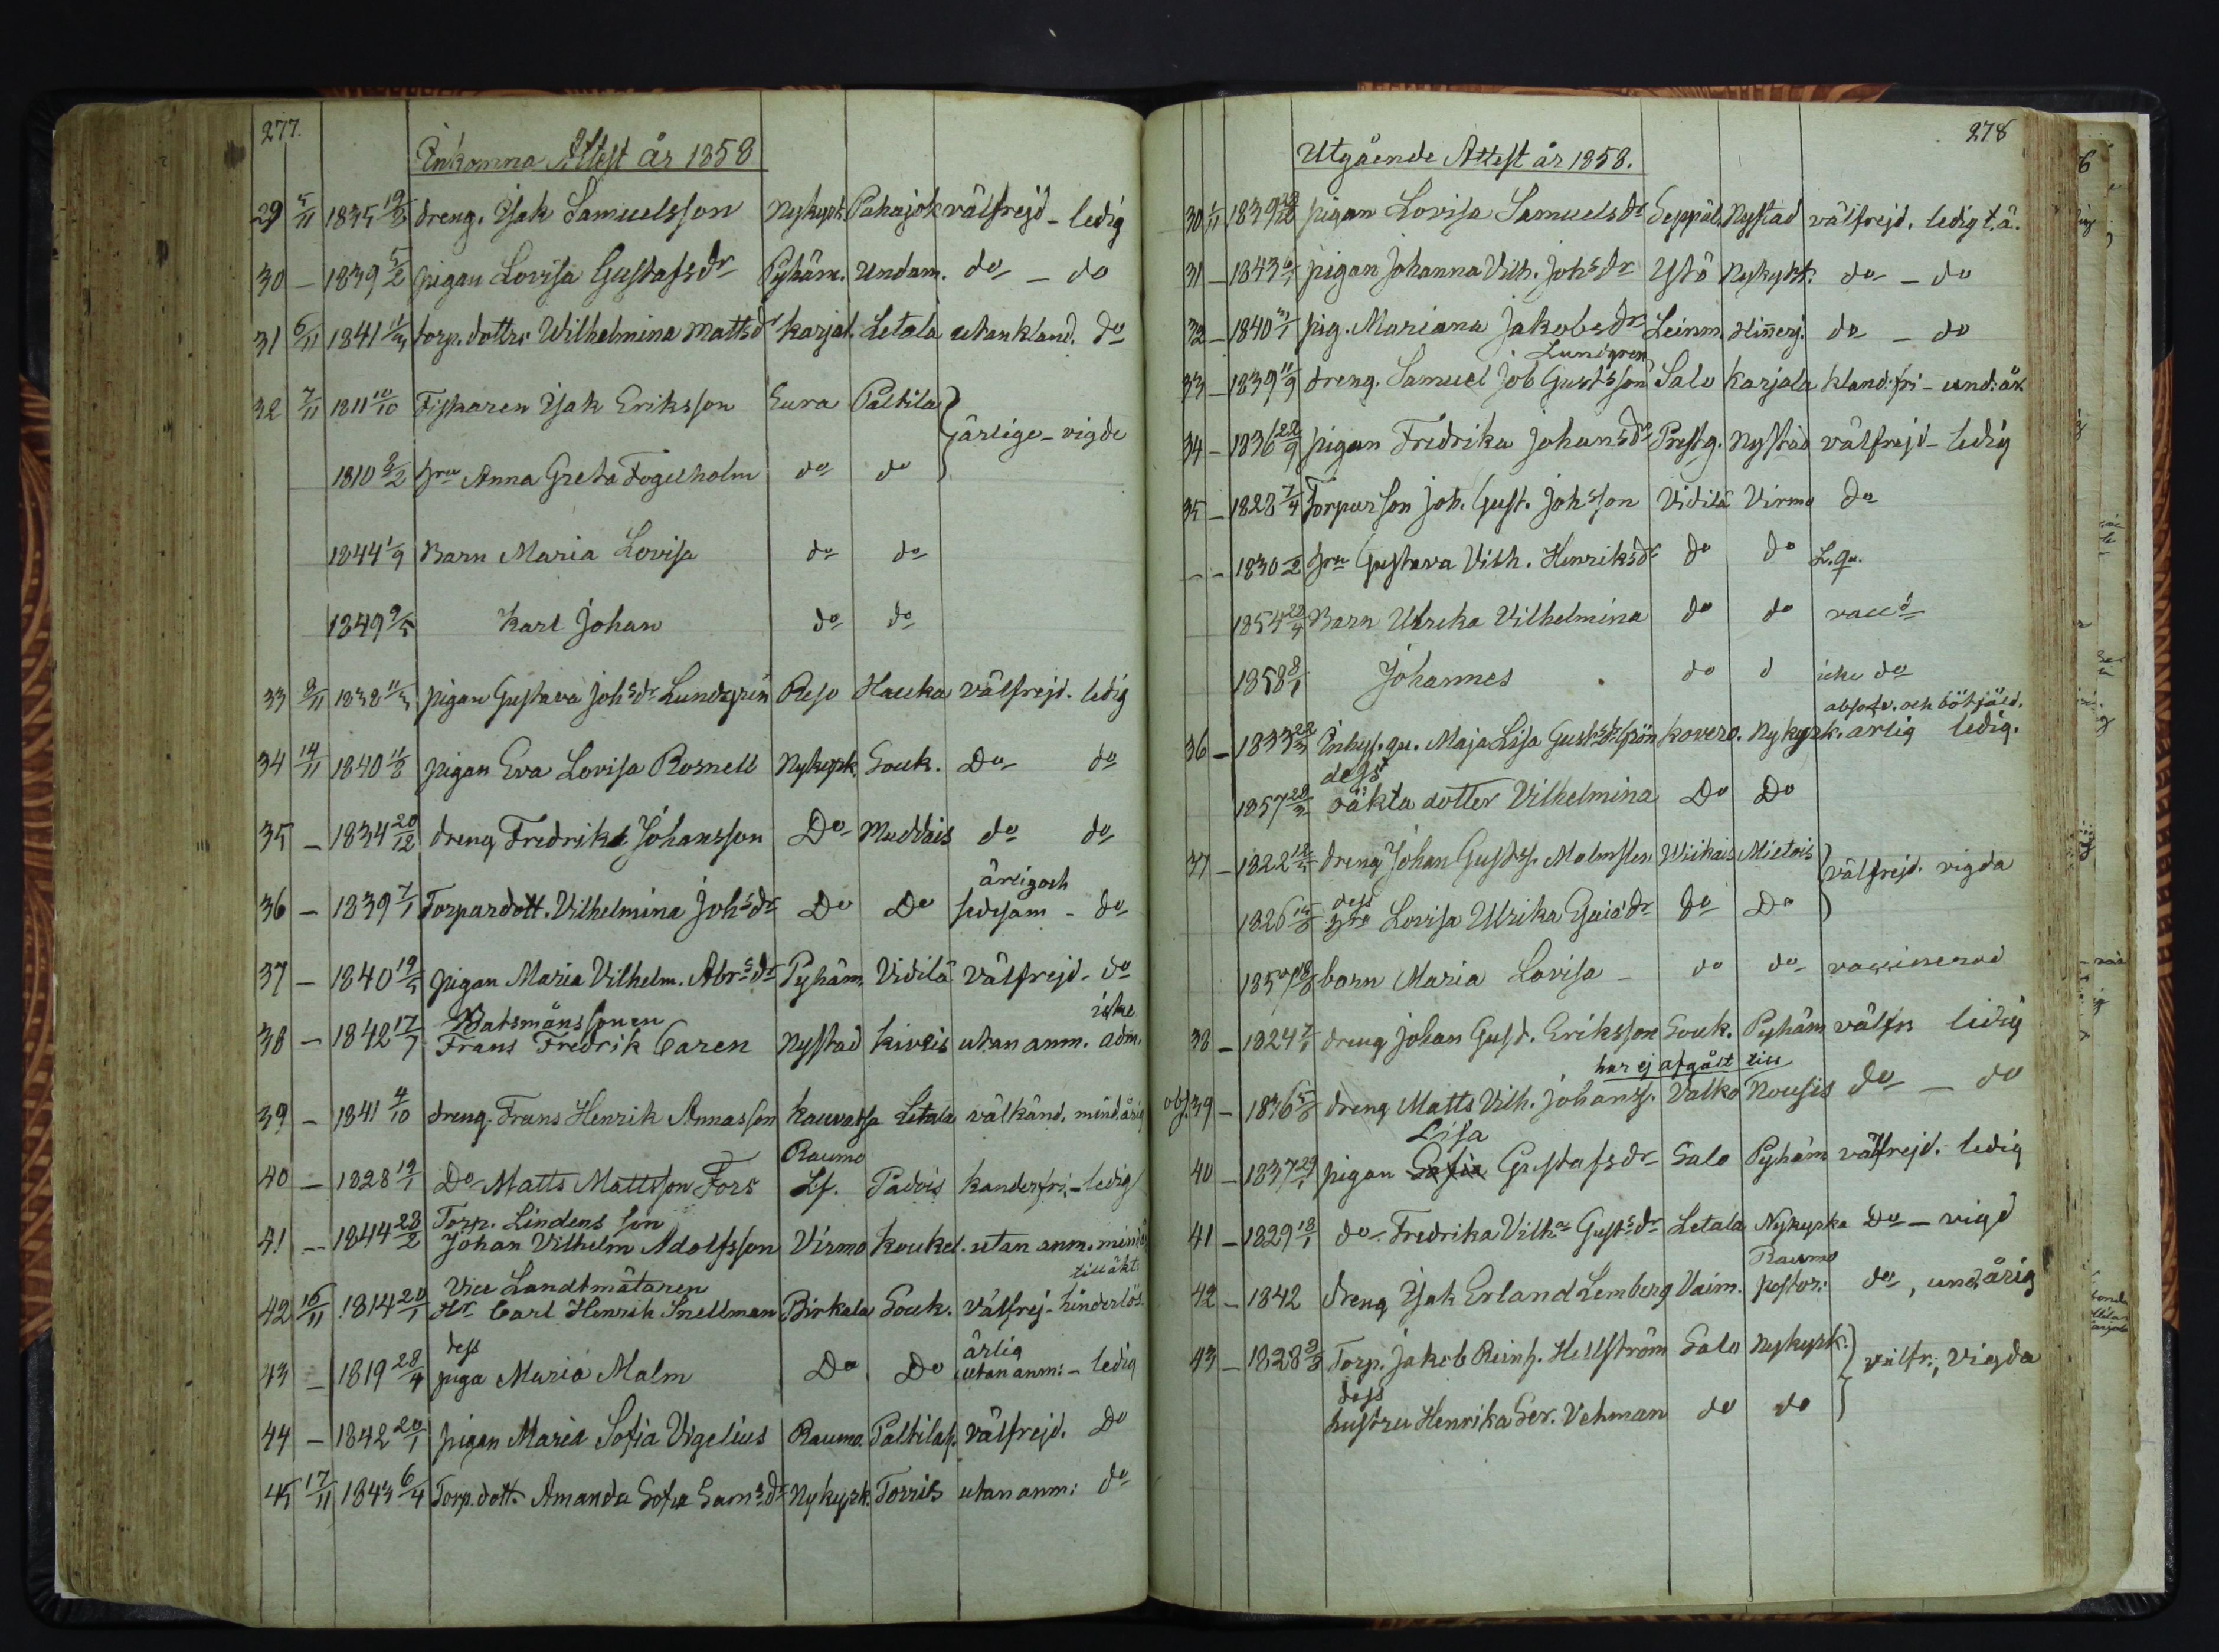 277.
Inkomna Attest år 1858
29 5/11 1835 19/3 dreng. Isak Samuelsson Nykyrk. Pahajok välfrejd - ledig
30 - 1839 5/2 pigan Lovisa Gustafsdr Pyhäm. Undam. do - do
31 6/11 1841 torp. dottrn Wilhelmina Mattsdr Karjal. Letala utan kland. do
32 7/11 1811 10/10 Fiskaren Isak Eriksson Eura Paltila
ärlige - vigde
1810 2/2 hru Anna Greta Fogelholm do do
1844 1/9 Barn Maria Lovisa do do
1849 9/5 Karl Johan do do
33 9/11 1838 11/3 pigan Gustava Johsdr Lundgrén Reso Hauka välfrejd. ledig
34 14/11 1840 11/8 pigan Eva Lovisa Rosnell Nykyrk Souk. Do do
35 - 1834 20/12 dreng Fredrik Johansson Do Muddais do do
ärlig och
36 - 1839 7/1 Torpardott. Vilhelmina Johsdr Do Do sedesam - do
37 - 1840 19/5 pigan Maria Vilhelm. Abrsdr Pyhäm. Vidilä välfrejd - do
Batsmänssonen icke
38 - 1842 17/7 Frans Fredrik Caren Nystad Kiveis utan anm. adm.
39 - 1841 4/10 dreng. Frans Henrik Annasson Kauvatsa Letala välkänd. mindårig
Raumo
40 - 1828 19/1 Do Matts Mattsson Fors Lf. Padvis kanderfri - ledig
Torp. Lindens son
41 - 1844 28/2 Johan Vilhelm Adolfsson Virmo Koukel. utan anm. mind
Vice Landtmätaren till äkt
42 16/11 1814 20/1 Hr Carl Henrik Snellman Birkala Souk. välfrej - hinderlös.
dess ärlig
43 - 1819 28/4 piga Maria Malm Do Do utan anm: - ledig
44 - 1842 20/1 pigan Maria Sofia Vigelius Raumo. Paltilah. välfrejd. Do
45 17/11 1843 6/4 Torp. dott. Amanda Sofia Samsdr Nykyrk. Torris utan anm: do
278
Utgående Attest år 1858.
30 1/11 1839 pigan Lovisa Samuelsdr Seppäl. Nystad välfrejd. ledig t. ä.
31 - 1843 pigan Johanna Vilh. Johsdr Ystö Nykyrk. do - do
32 - 1840 pig. Mariana Jakobsdr Leinm. Hinnerj. do - do
Lundgren
33 - 1839 11/9 dreng. Samuel Job Gustsson Salo Karjala kland. fri - und: år.
34 - 1836 22/9 pigan Fredrika Johansdr Prestg. Nystad välfrejd - ledig
35 - 1828 7/4 Torparson Joh. Gust. Johsson Vidilä Virmo do
- - 1830 hru Gustava Vilh. Henriksdr do do L. qv.
1854 28/4 Barn Ulrika Vilhelmina do do vacc
1858 8/1 Johannes do d icke do
absolv. och bötfäld.
36 - 1833 Inhys. qv. Maja Lisa Gustsdr Grön Kovero. Nykyrk. ärlig ledig.
dess
1857 28/3 oäkta dotter Vilhelmina Do Do
37 - 1822 12/5 dreng Johan Gustss. Malmsten Wiikais Mietois
välfrejd. vigda
dess
1826 hru Lovisa Ulrika Do Do
1857 barn Maria Lovisa - do do vaccinerad
38 - 1824 7/1 dreng Johan Gust. Eriksson Souk. Pyhäm välfr ledig
har ej afgått till
obs. 39 - 1836 dreng Matts Vilh. Johans. Valko Nousis do - do
Lisa
40 - 1837 29/1 pigan Sofia Gustafsdr Salo Pyhäm välfrejd. ledig
41 - 1829 18/1 do Fredrika Vilha Gustsdr Letala Nykyrka Do - vigd
Raumo
42 - 1842 dreng Isak Erland Lemberg Vaim. pastor: do, und. årig
43 - 1828 2/3 Torp. Jakob Reinh. Hellström Salo Nykyrk.
välfr., Vigda
dess
hustru Henrika Ser. Vehman do do